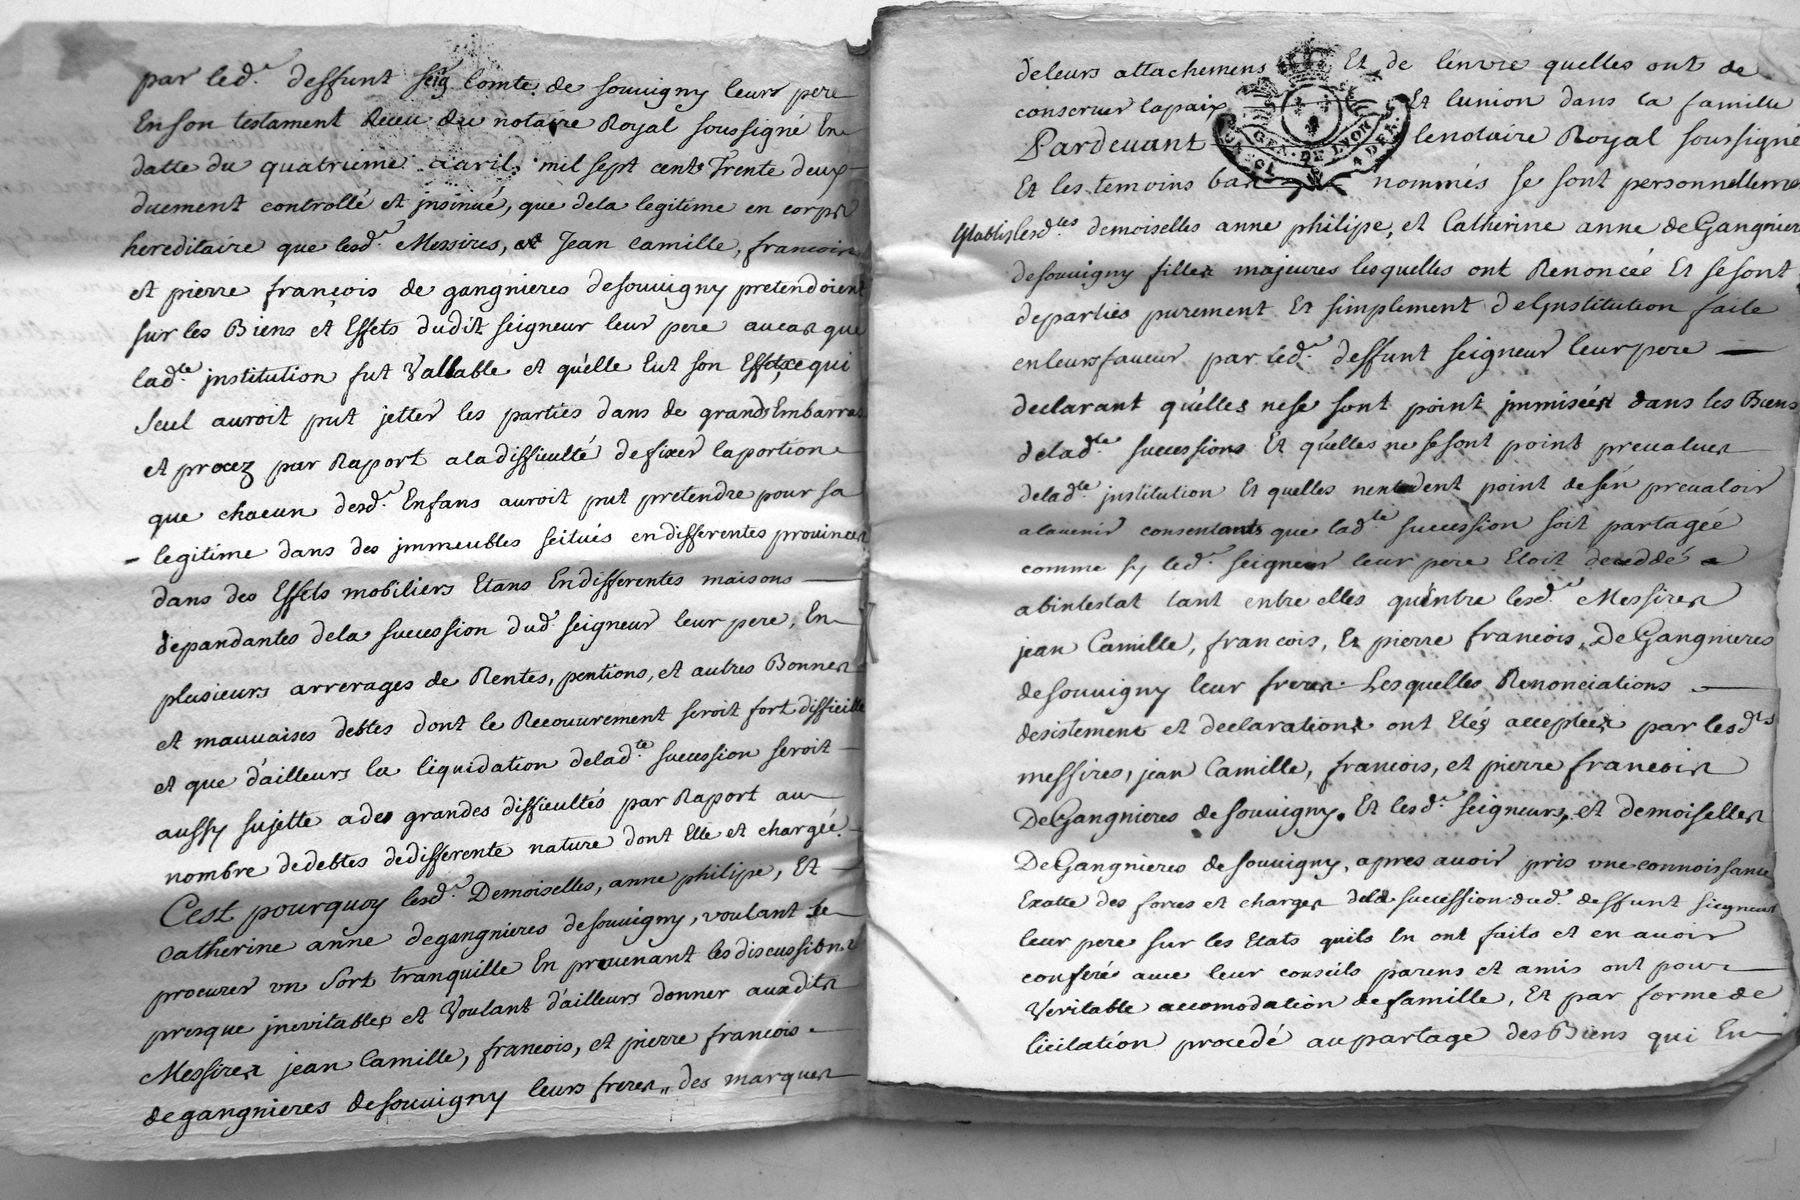 par led.r deffunt seig Comte de souvigny leurs pere
En son testament Receu du notaire Royal soussigné En
datte du quatrieme avril mil sept cents Trente deux
duement controllé et jnsinué, que dela legitime en corps
hereditaire que lesd.r Messires, et Jean camille, francois
et pierre françois de gangnieres desouvigny pretendoient
sur les Biens et Effets dudit seigneur leur pere aucas que
lad.te jnstitution fut Vallable et qu'elle Eut son Effet, ce qui
seul auroit put jetter les parties dans de grands Embarras
et procez par Raport ala difficulté defixer laportion
que chacun desd.r Enfans auroit put pretendre pour sa
legitime dans des jmmeubles scitués endifferentes provinces
dans des Effets mobiliers Etans Endifferentes maisons
depandantes dela succession dud.r seigneur leur pere, En
plusieurs arrerages de Rentes, pentions, et autres Bonnes
et mauvaises debtes dont le Recouvrement seroit fort difficille
et que d'ailleurs la liquidation delad.te succession seroit
aussy sujette ades grandes difficultés par Raport au
nombre dedebtes dedifferente nature dont Elle et chargée.
C'est pourquoy lesd.r Demoiselles, anne philipe, Et
Catherine anne degangnieres desouvigny, voulant se
procurer un sort tranquille En prevenant les discussions
presque jnevitables et Voulant d'ailleurs donner auxdits
Messires jean Camille, francois, et pierre francois
degangnieres desouvigny leurs freres des marques
deleurs attachemens Et de lenvie quelles ont de
conserver lapaix Et lunion dans la famille
Pardevant lenotaire Royal soussigné
GEN. DE LYON
Et les temoins bas nommés se sont personnelleme
Etablis lesd.tes demoiselles anne philipe, et Catherine anne deGangnier
desouvigny filles majeures lesquelles ont Renoncée Et sesont
departies purement Et simplement delJnstitution faite
enleurs faveur par led.r deffunt seigneur leur pere
declarant qu'elles nese sont point jmmisées dans les Biens
delad.te successions Et qu'elles ne sesont point prevalues
delad.te jnstitution Et quelles nentendent point desén prevaloir
alavenir consentants que lad.te succession soit partagée
comme sy led.r seigneur leur pere Etoit deceddé
abintestat tant entre elles quéntre lesd.r Messires
jean Camille, francois, Et pierre francois, DeGangnieres
desouvigny leur freres. Lesquelles Renonciations
desistement et declarations ont Etés acceptées par lesd.ts
messires, jean Camille, francois, et pierre francois
DeGangnieres desouvigny. Et lesd.r seigneurs, et demoiselles
DeGangnieres desouvigny, apres avoir pris une connoissance
Exatte des forces et charges dela succession dud.r deffunt siegneur
leur pere sur les Etats quils En ont faits et en avoir
conferé avec leur conseils parens et amis ont pour
Veritable accomodation defamille, Et par forme de
licitation procedé aupartage des Biens qui En